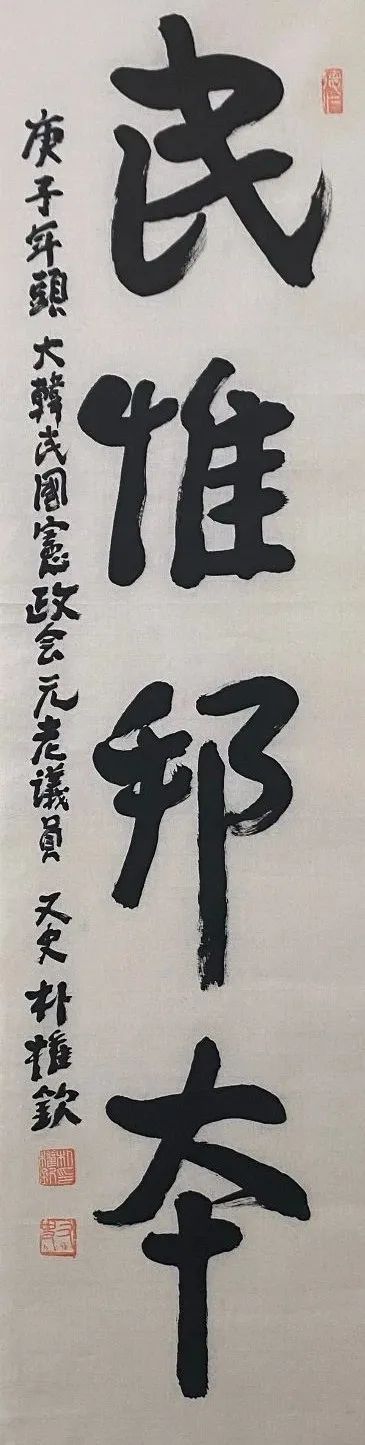 民惟邦本
庚子年頭 大韓民國憲政会元老議員 又史 朴權欽